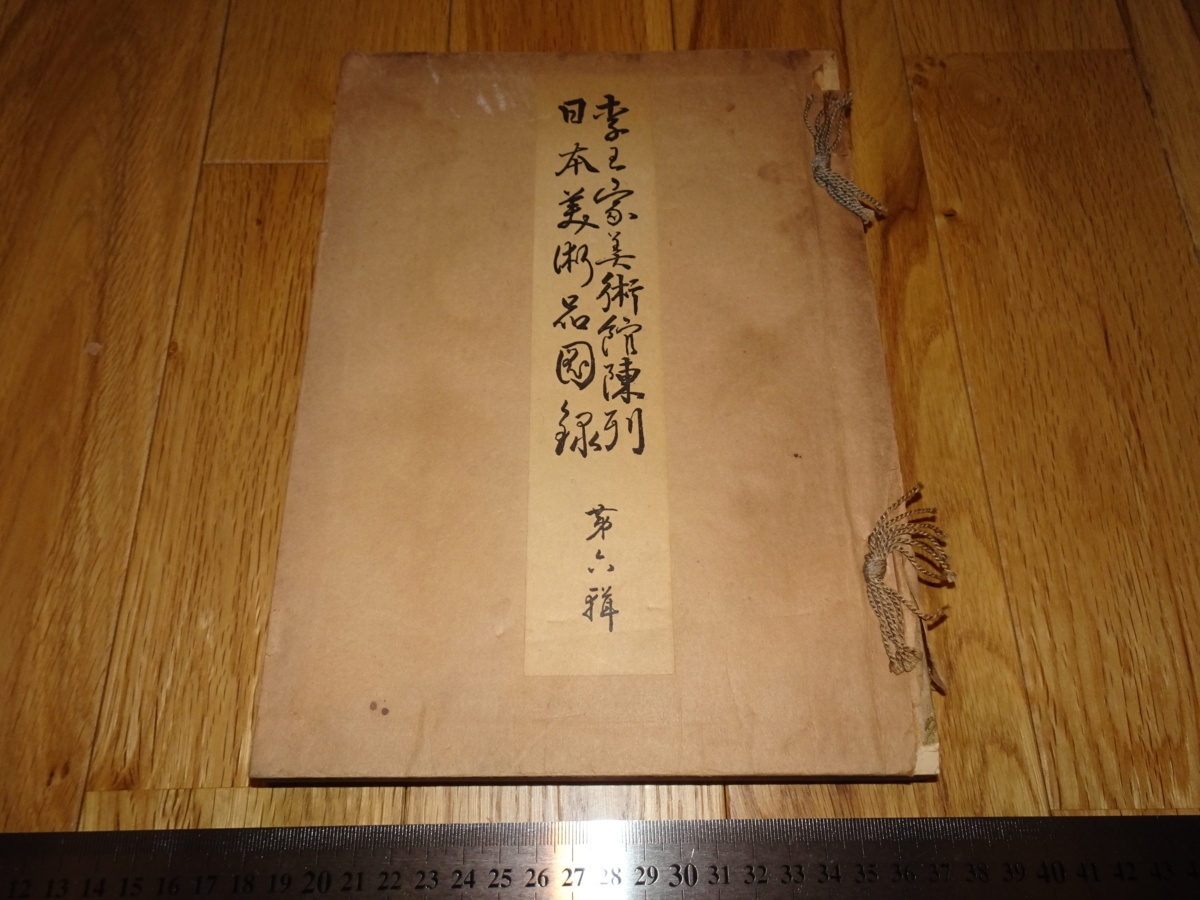 李王家美術館陳列
日本美術品図録
第六輯
12 13 14 15 16 17 18 19 20 21 22 23 24 25 26 27 28 29 30 31 32 33 34 35 36 37 38 39 40 41 42 43